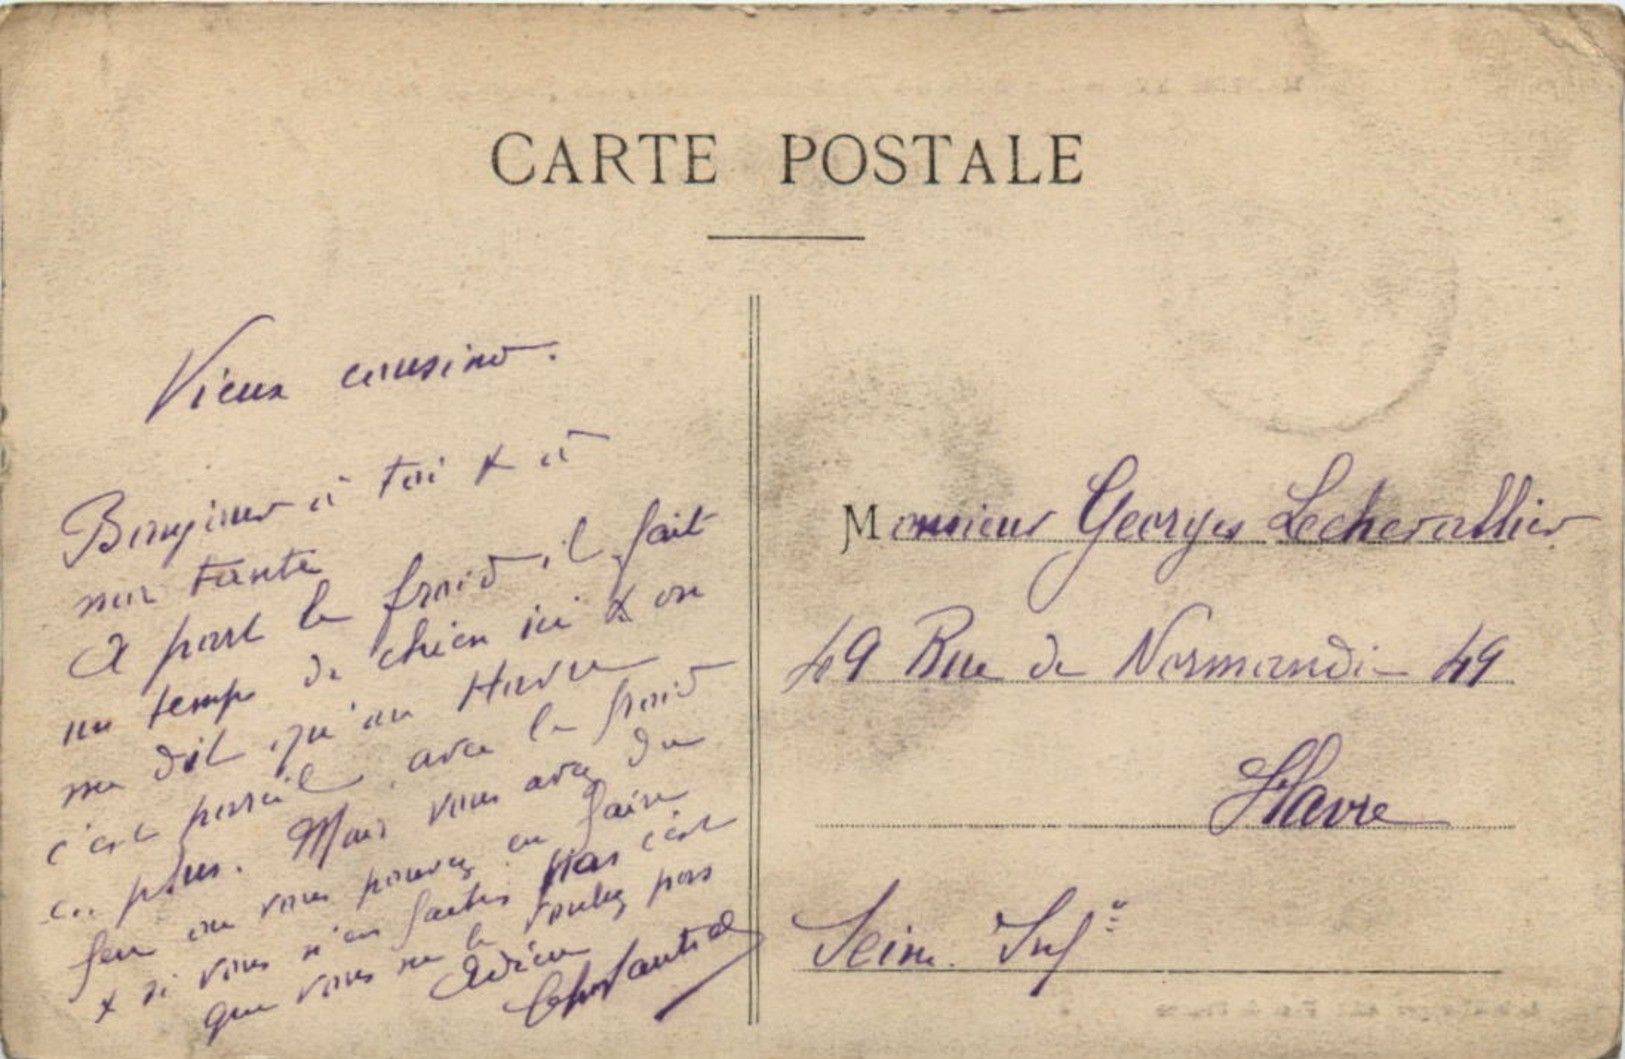 CARTE POSTALE
Vieux cousin.
Bonjour à toi & à
ma tante
A part le froid, il fait
un temps de chien ici & on
me dit qu'au Havre
c'est pareil, avec le froid
en plus. Mais vous avez du
feu ou vous pouvez en faire
& si vous n'en faites pas c'est
que vous ne le voulez pas
Adieu
Monsieur Georges Lechevallier
49 Rue de Normandie 49
Havre
Seine Infre